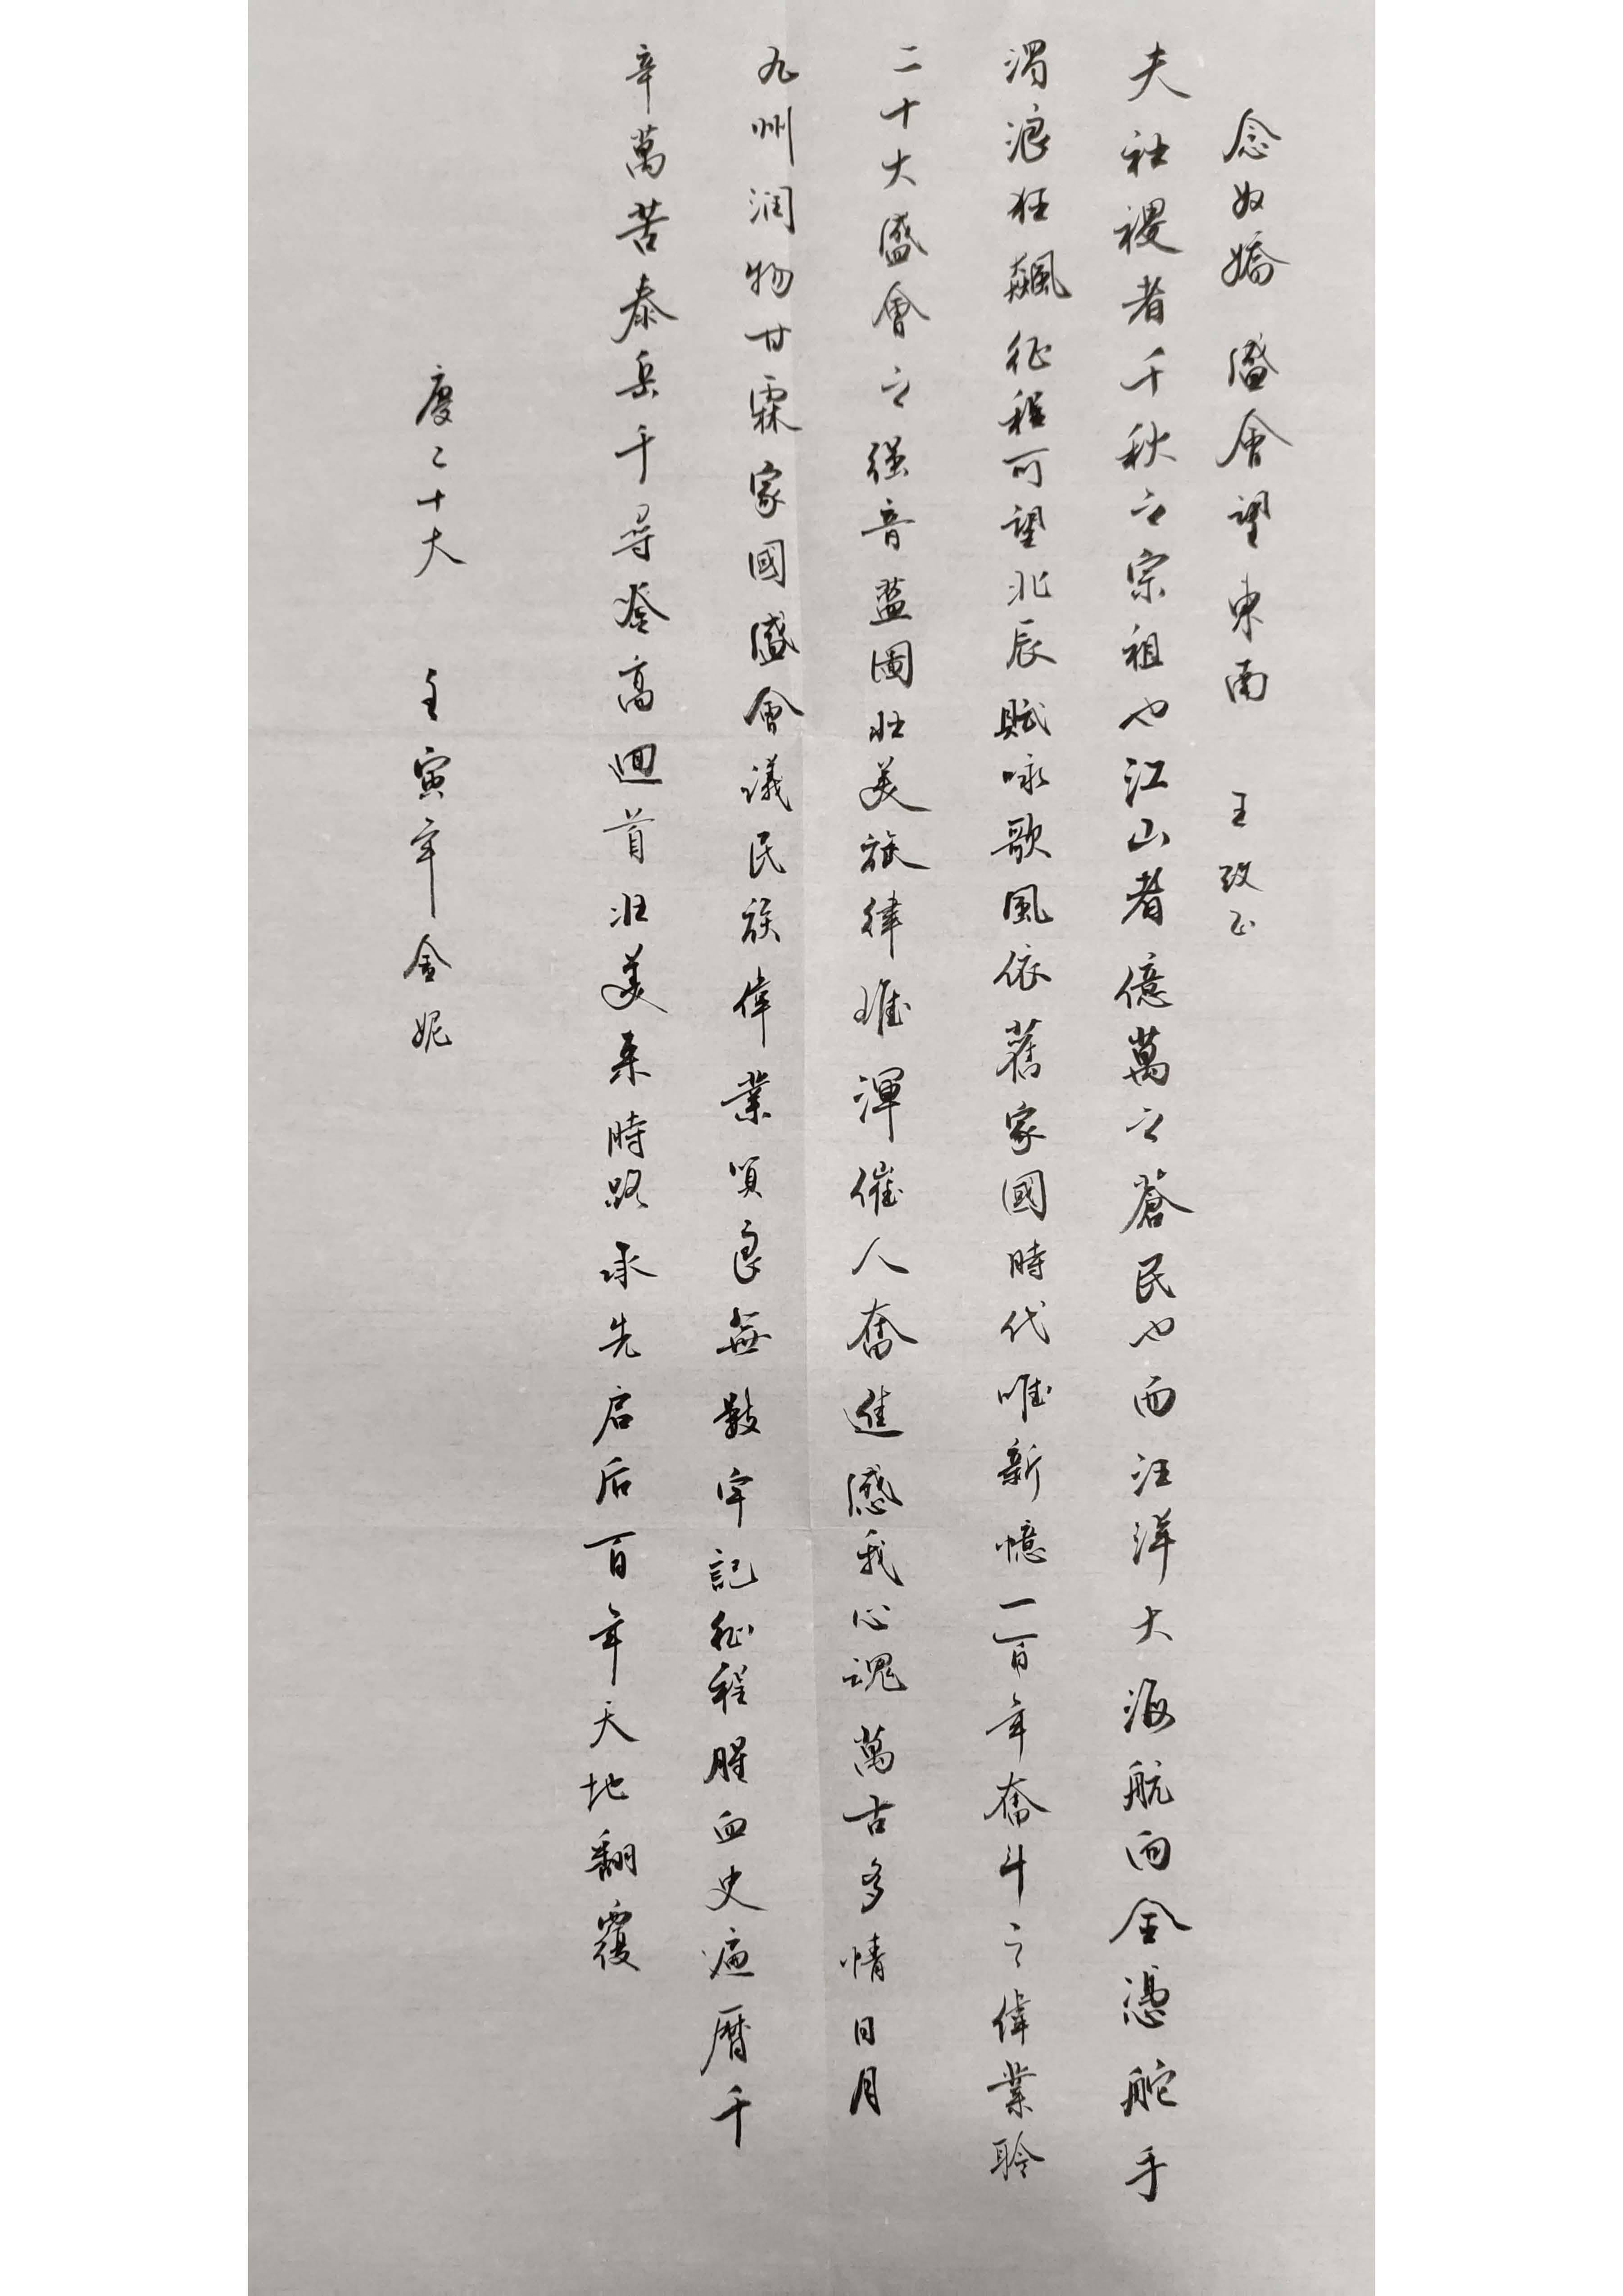 念奴嬌 盛會望東南 王政正
夫社稷者千秋之宗祖也江山者億萬之蒼民也而汪洋大海航向全憑舵手
濁浪狂飆征程可望北辰賦咏歌風依舊家國時代唯新憶一百年奮斗之偉業聆
二十大盛會之强音藍圖壯美旅律雄渾催人奮進感我心魂萬古多情日月
九州润物甘霖家國盛會議民族偉業貭良無數牢記征程腥血史遍曆千
辛萬苦泰岳千尋登高迴首壯美来時路承先启后百年天地翻覆
慶二十大 壬寅年金妮